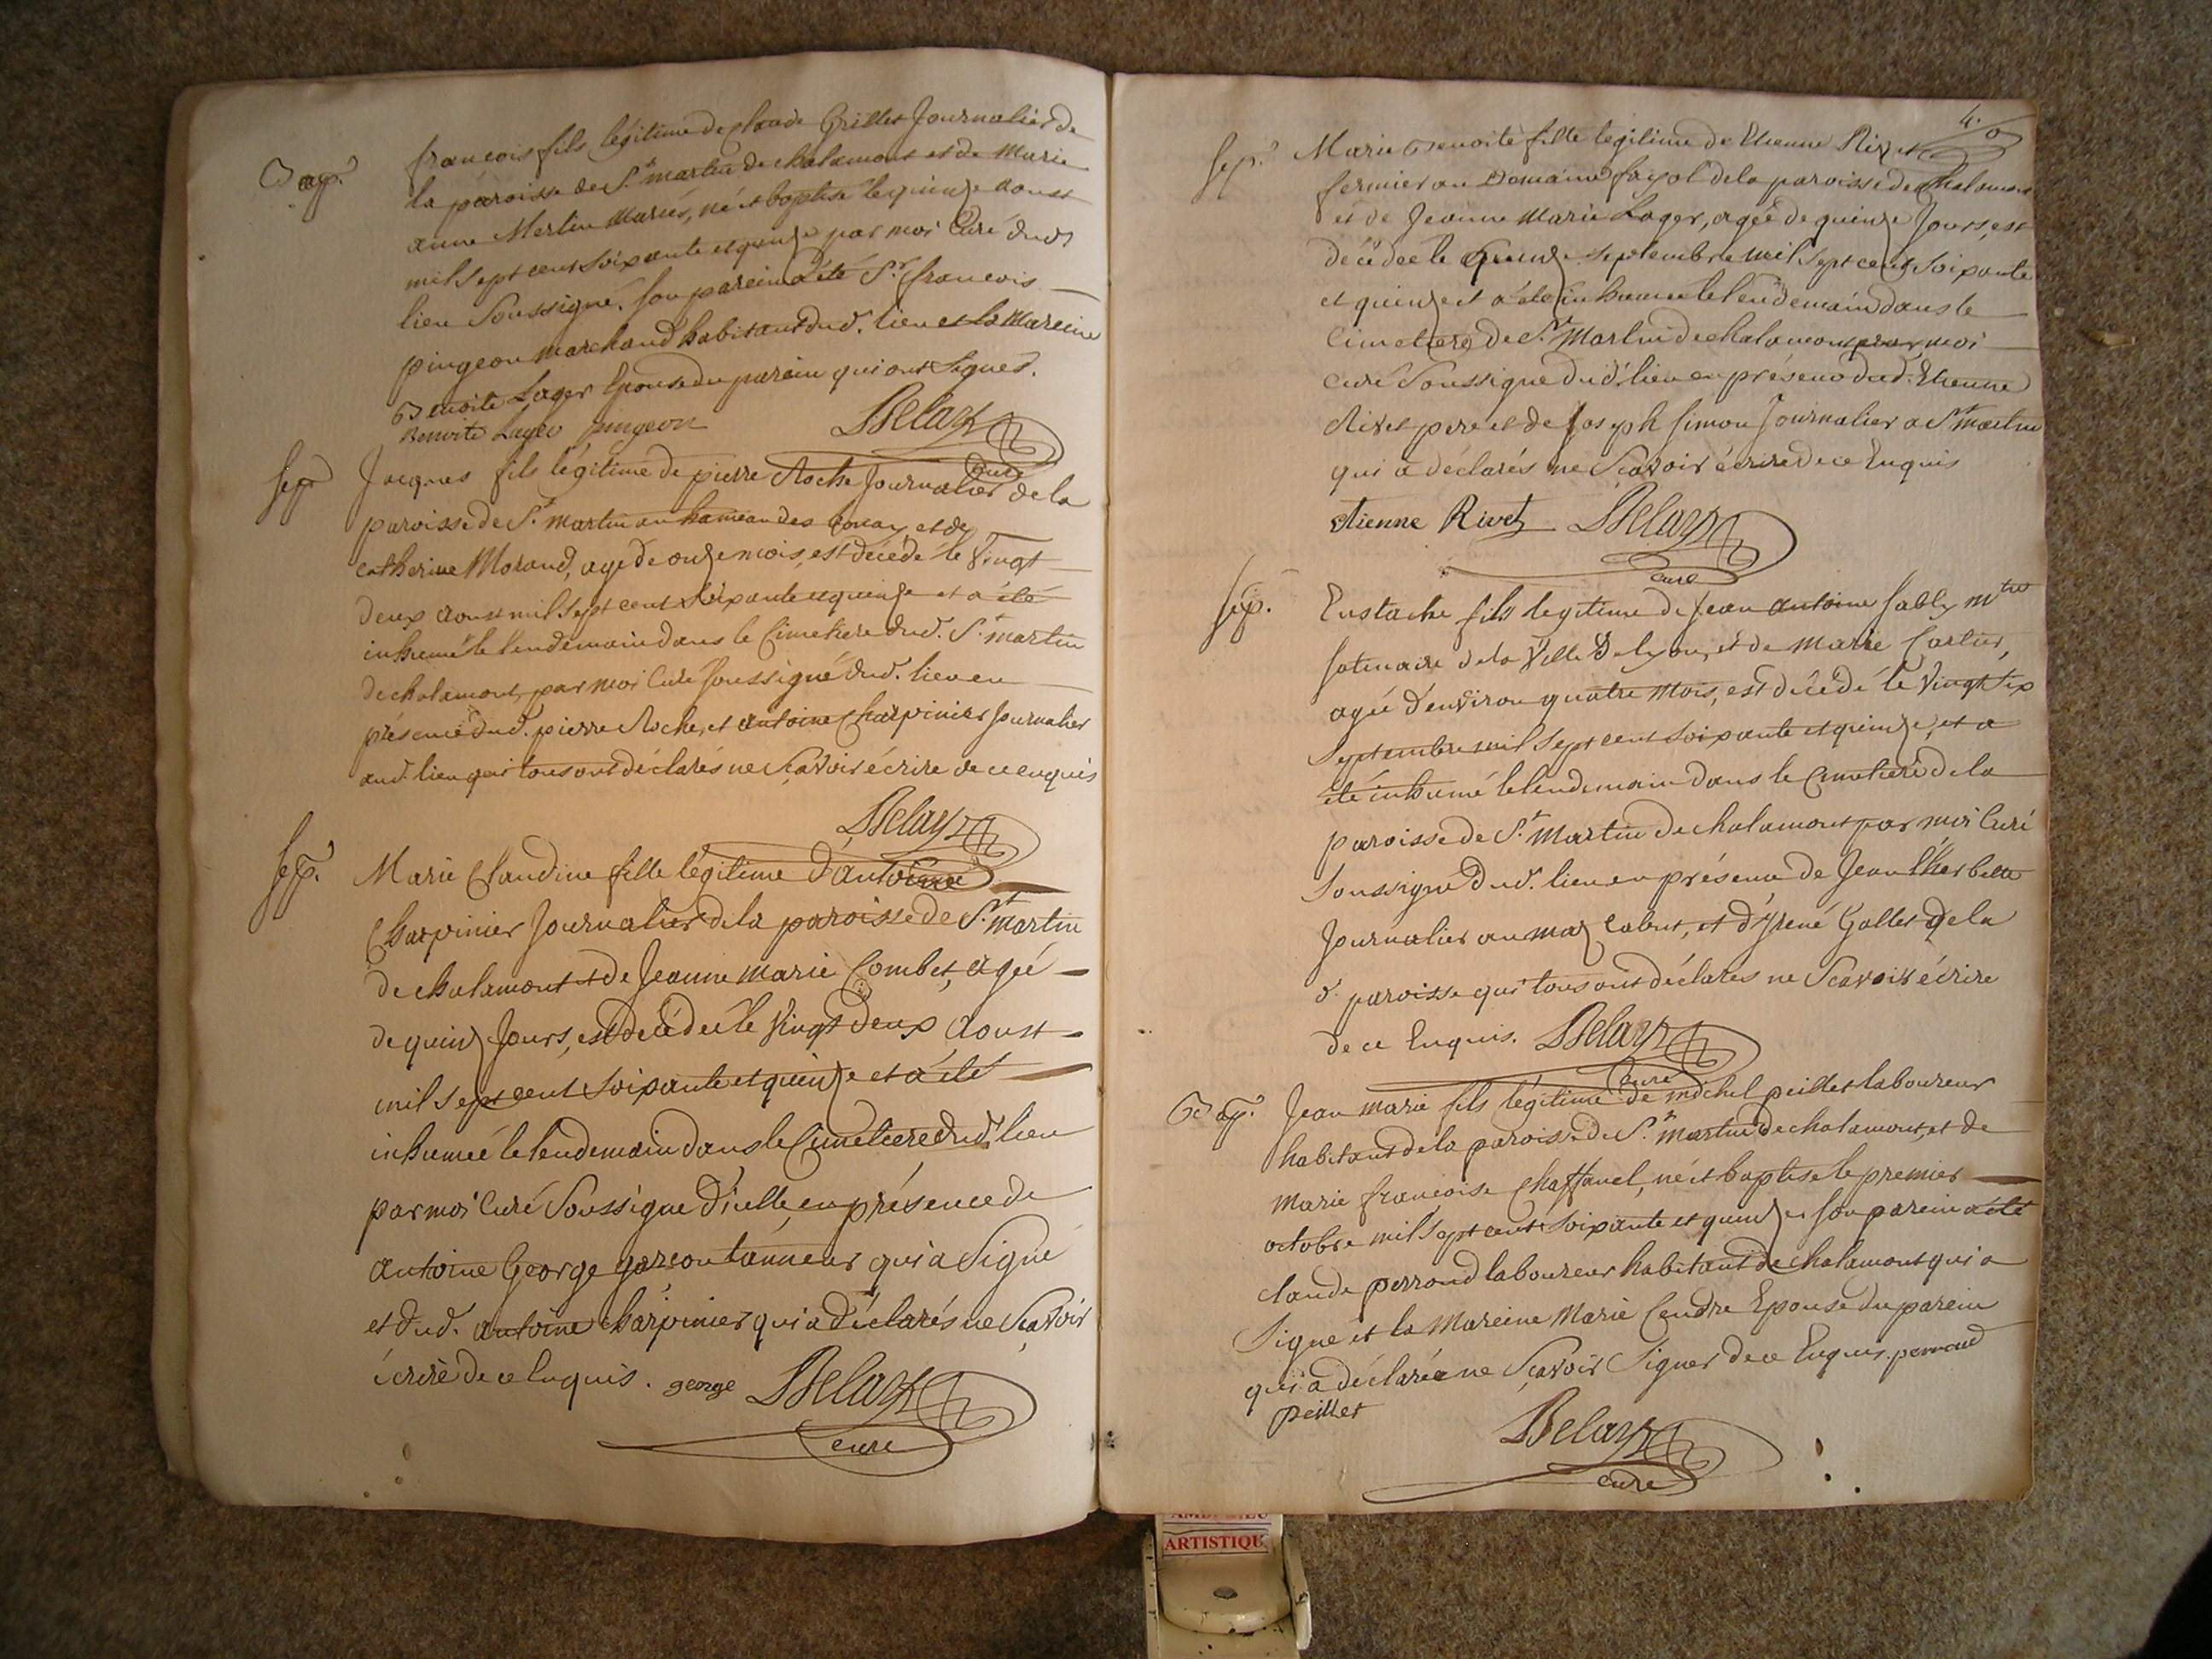 Bap.
françois fils légitime de Claude Grillet Journalier de
la paroisse de St. martin de chalamont et de Marie
anne Merlin Mariés, né et baptisé le quinze aoust
mil sept cent soixante et quinze par moi Curé dud.
lieu Soussigné. Son parein a été Sr. françois
pingeon marchand habitant dud. lieu et la Mareine
Benoite Lager Epouse du parein qui ont Signés.
Benoite Lager pingeon Belay
curé
sep
Jacques fils légitime de pierre Roche Journalier de la
paroisse de St. martin au hameau des et de
catherine Morand, agé de onze mois, est décédé le Vingt
deux aoust mil sept cent soixante et quinze et a été
inhumé le lendemain dans le Cimetiere dud. St. martin
de chalamont, par moi Curé soussigné dud. lieu en
présence dud. pierre Roche, et antoine Charpinier Journalier
aud. lieu qui tous ont déclarés ne Scavoir écrire de ce enquis
Belay
sep.
Marie Claudine fille légitime d'antoine
Charpinier Journalier de la paroisse de St. martin
de chalamont et de Jeanne marie Combet, agée
de quinz Jours, est décédée le Vingt deux aoust
mil sept cent soixante et quinze et a été
inhumée le lendemain dans le Cimetiere dud. lieu
par moi Curé Soussigné d'icelle, en présence de
antoine George garcon tanneur qui a Signé
et dud. antoine charpinier qui a déclarés ne Scavoir
écrire de ce Enquis. george Belay
curé
4.
sep.
Marie Benoite fille legitime de Etienne Rivet
fermier au Domaine fayol de la paroisse de Chalamont
et de Jeanne Marie Lager, agée de quinze Jours, est
décédée le quinze septembre mil sept cent soixante
et quinze et a été inhumée le lendemain dans le
Cimetiere de St. Martin de chalamont par moi
curé Soussigné dud. lieu en présence dud. Etienne
Rivet pere et de Joseph simon Journalier a St. martin
qui a déclarés ne Scavoir écrire de ce Enquis
etienne Rivet Belay
curé
sep.
Eustache fils legitime de Jean antoine sably mtre
satinaire de la Ville de lyon, et de Marie Cartier,
agée d'environ quatre mois, est décédé le Vingt six
Septembre mil sept cent soixante et quinze, et a
été inhumé le lendemain dans le Cimetiere de la
paroisse de St. Martin de chalamont par moi Curé
Soussigné dud. lieu en présence de Jean l'herbette
Journalier au maz Cabut, et d'Yrené Gallet de la
d. paroisse qui tous ont déclarés ne Scavoir écrire
de ce Enquis. Belay
curé
Bap.
Jean marie fils légitime de michel peillet laboureur
habitant de la paroisse de St. martin de chalamont, et de
marie françoise Chaffanel, né et baptisé le premier
octobre mil sept cent soixante et quinze, son parein a été
claude perroud laboureur habitant de chalamont qui a
Signé et la Mareine Marie Cendre Epouse du parein
qui a déclarée ne Scavoir Signer de ce Enquis. perroud
peillet
Belay
curé
ARTISTIQU